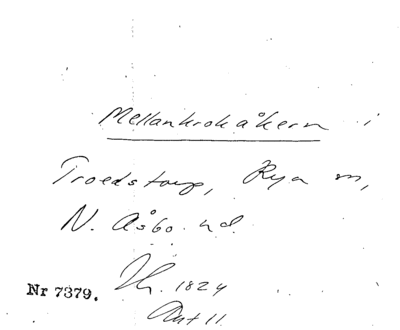 Mellankrokåkern i
Troedstorp, Rya sn,
N. Åsbo hd.
Nr 7379. 1824
Akt 11